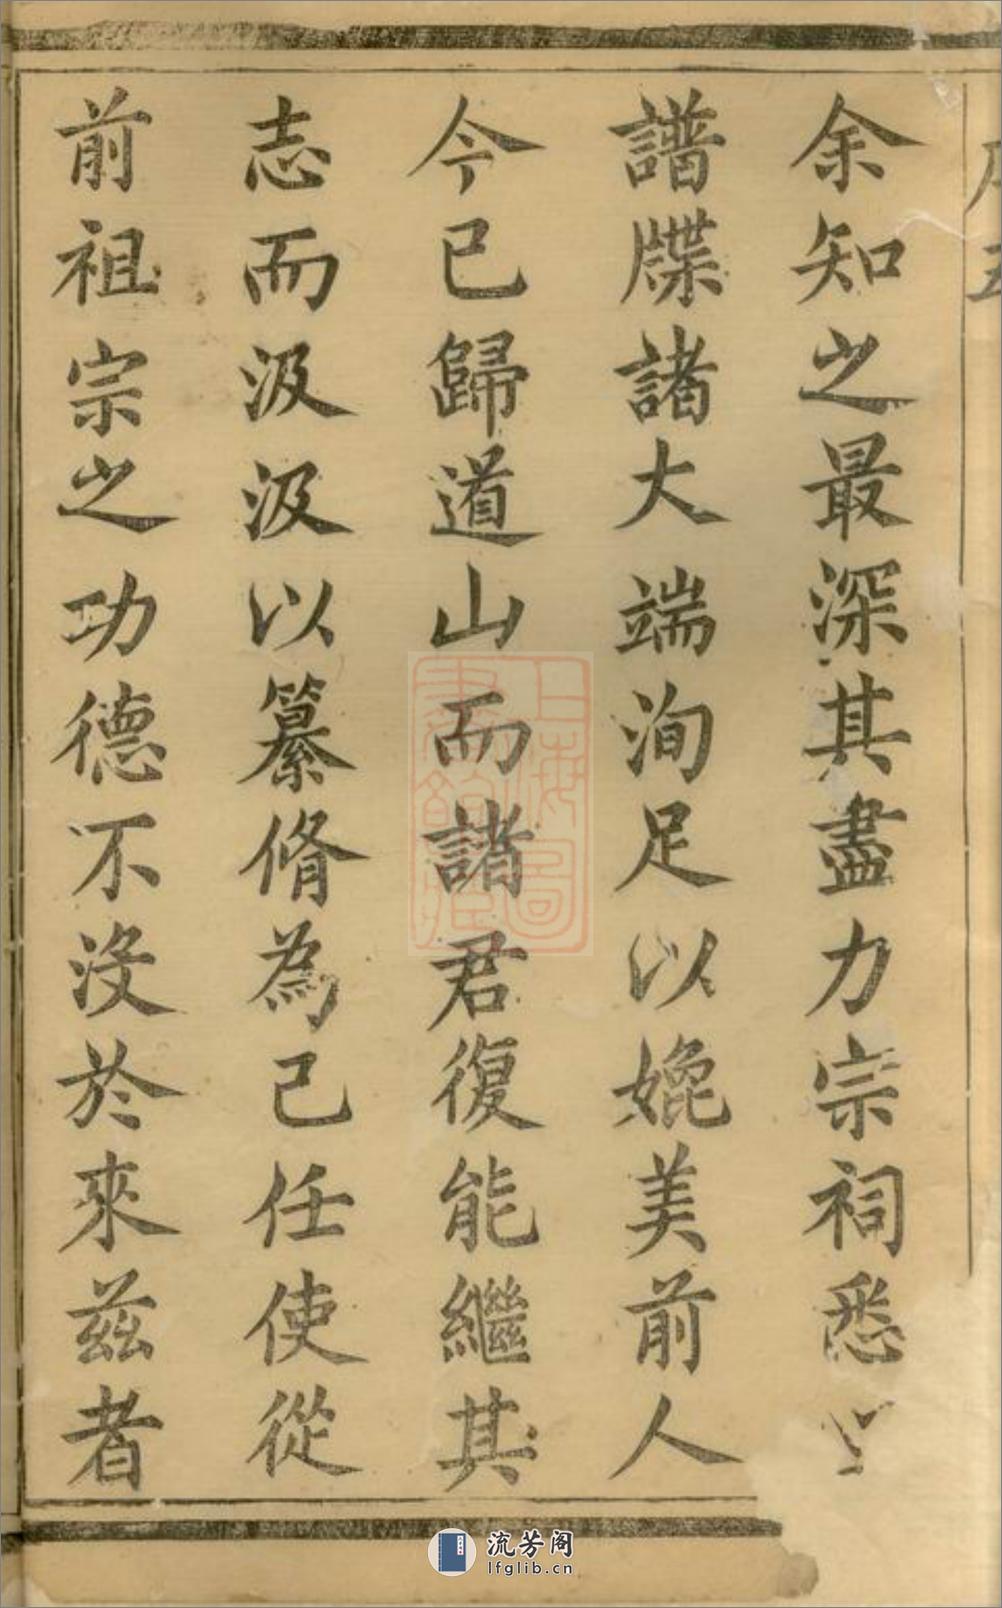 余知之最深其盡力宗祠悉
譜牒諸大端洵足以媲美前人
今已歸道山而諸君復能繼其
志而汲汲以纂脩為己任使從
前祖宗之功德不沒於來茲者
上海圖書館藏
流芳阁
lfglib.cn